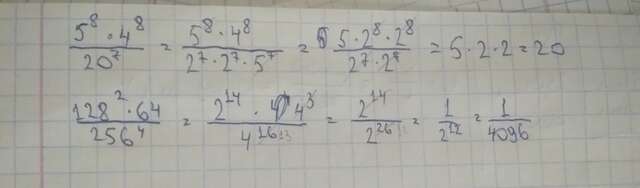 5⁸ · 4⁸ / 20⁷ = 5⁸ · 4⁸ / 2⁷ · 2⁷ · 5⁷ = 5 · 2⁸ · 2⁸ / 2⁷ · 2⁷ = 5 · 2 · 2 = 20
128² · 64 / 256⁴ = 2¹⁴ · 4³ / 4¹⁶ ¹³ = 2¹⁴ / 2²⁶ = 1 / 2¹² = 1 / 4096